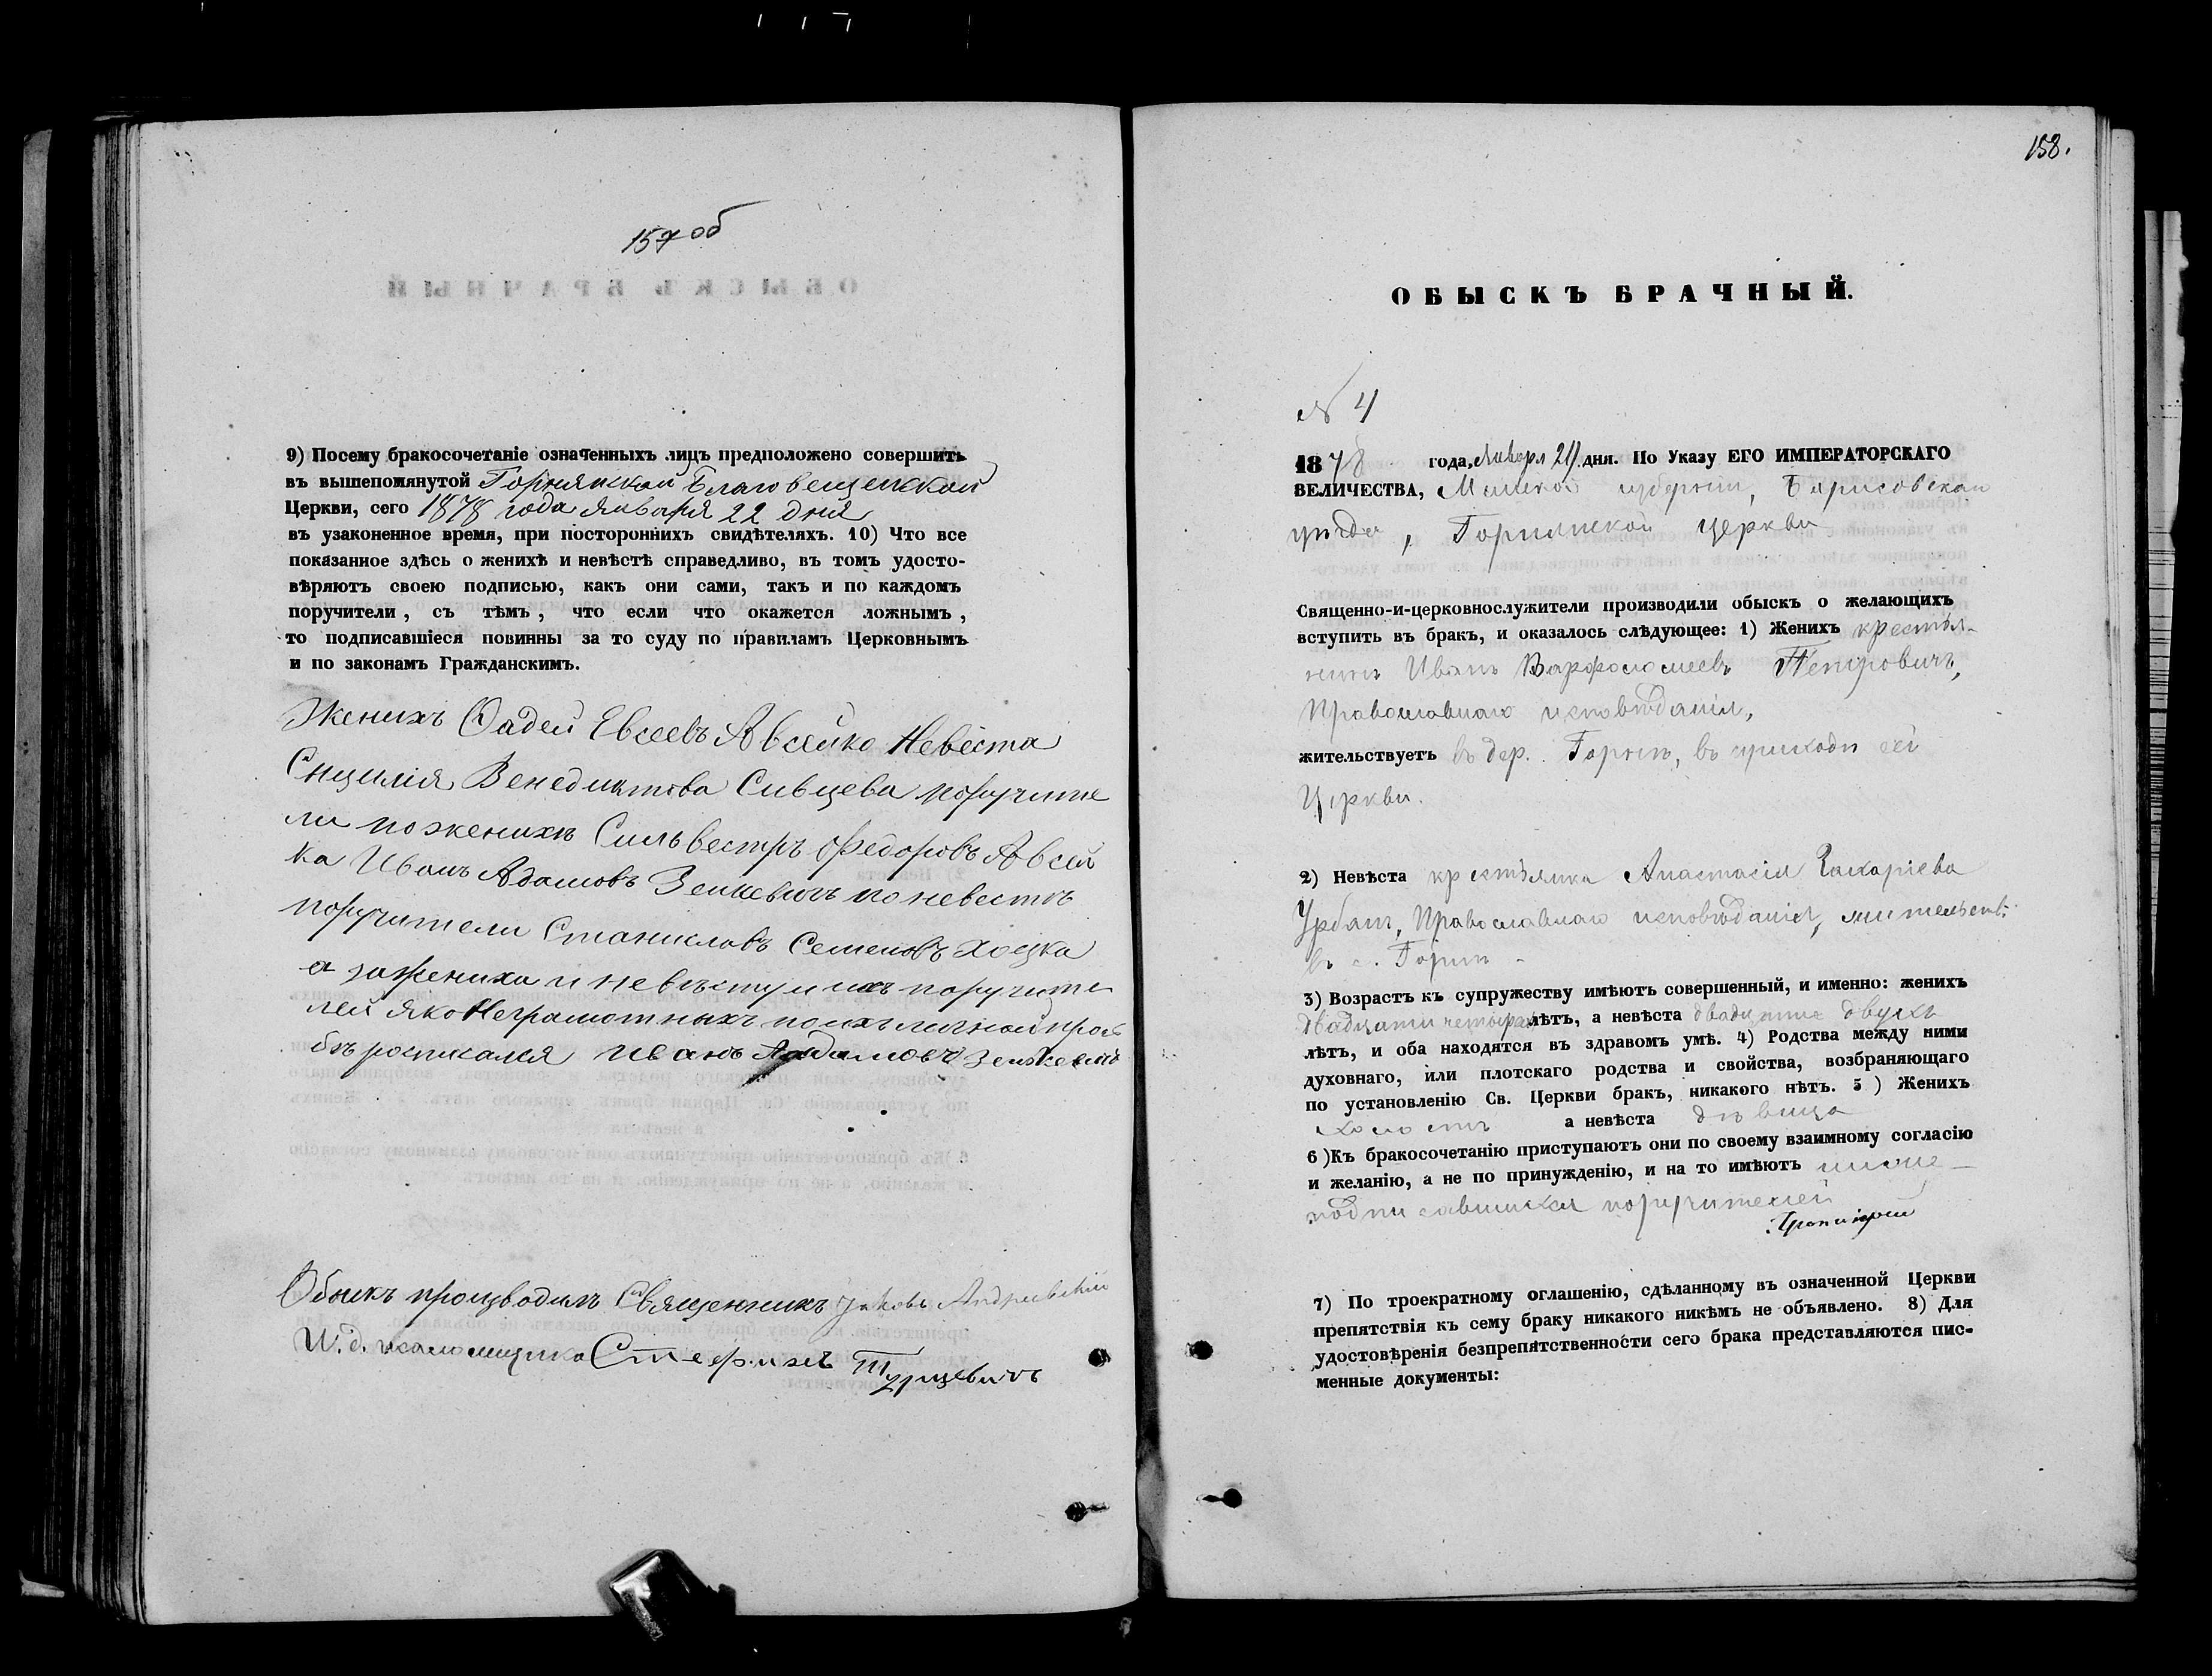 157 об
9) Посему бракосочетаніе означенныхъ лицъ предположено совершить
въ вышепомянутой Горнянской Благовещенской
Церкви, сего 1878 года Января 22 дня
въ узаконенное время, при постороннихъ свидѣтеляхъ. 10) Что все
показанное здѣсь о женихѣ и невѣстѣ справедливо, въ томъ удосто-
вѣряютъ своею подписью, какъ они сами, такъ и по каждомъ
поручители, съ тѣмъ, что если что окажется ложнымъ,
то подписавшіеся повинны за то суду по правиламъ Церковнымъ
и по законамъ Гражданскимъ.
Женихъ Фадей Евсеевъ Авсейко Невеста
Сицилія Венедиктова Сивцева поручите
ли по женихѣ Сильвестръ Федоровъ Авсей
ка Иванъ Адамовъ Зенкевичъ по невестѣ
поручители Станиславъ Семеновъ Хоцка
а за жениха и невѣсту и ихъ поручите
лей яко неграмотныхъ по ихъ личной прось
бѣ росписался Иванъ Адамовъ Зенкевичъ
Обыскъ производилъ Священникъ Іаковъ Андреевскій
И. д. псаломщика Стефанъ
158.
ОБЫСКЪ БРАЧНЫЙ.
№ 4
1878 года, Января 29 дня. По Указу ЕГО ИМПЕРАТОРСКАГО
ВЕЛИЧЕСТВА, Минской губерніи, Борисовскаго
уѣзда, Горнянской церкви
Священно-и-церковнослужители производили обыскъ о желающихъ
вступить въ бракъ, и оказалось слѣдующее: 1) Женихъ крестья-
нинъ Иванъ Варфоломеевъ Петровичъ,
Православнаго исповѣданія,
жительствуетъ въ дер. въ приходѣ сей
Церкви.
2) Невѣста крестьянка Анастасія Захаріева
Урбанъ, Православнаго исповѣданія, жительств.
въ с.
3) Возрастъ къ супружеству имѣютъ совершенный, и именно: женихъ
двадцати четырехъ лѣтъ, а невѣста двадцати двухъ
лѣтъ, и оба находятся въ здравомъ умѣ. 4) Родства между ними
духовнаго, или плотскаго родства и свойства, возбраняющаго
по установленію Св. Церкви бракъ, никакого нѣтъ. 5) Женихъ
холостъ а невѣста дѣвица
6) Къ бракосочетанію приступаютъ они по своему взаимному согласію
и желанію, а не по принужденію, и на то имѣютъ ниже-
подписавшихся поручителей
7) По троекратному оглашенію, сдѣланному въ означенной Церкви
препятствія къ сему браку никакого никѣмъ не объявлено. 8) Для
удостовѣренія безпрепятственности сего брака представляются пис-
менные документы: